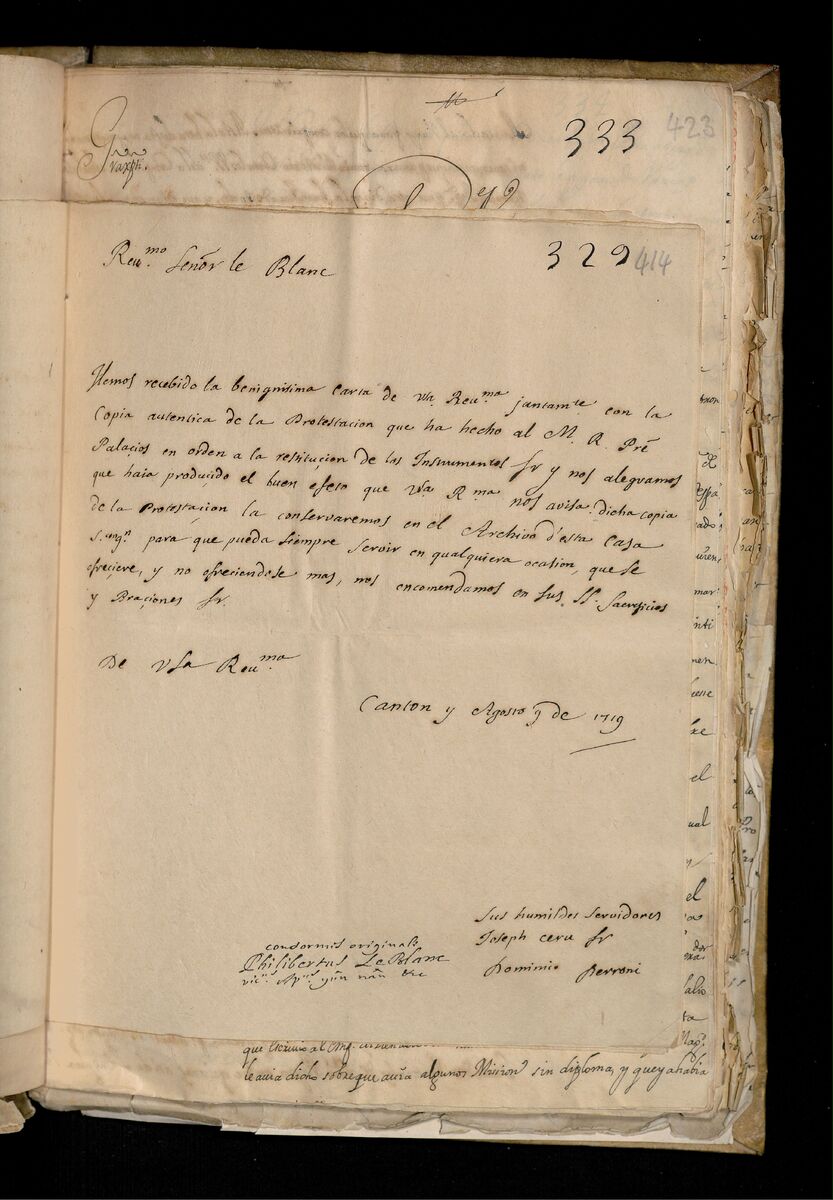 333 423
Rev.mo Señor le Blanc
329 414
Hemos recebido la benignissima carta de Vsa. Reu.ma juntamte con la
Copia autentica de la Protestacion que ha hecho al M. R. Pre
Palacios en orden a la restituçion de los Instrumentos &r y nos alegvamos
que haia produçido el buen efeto que Vsa R.ma nos avisa. dicha copia
de la Protestaçion la conservaremos en el Archivo d'esta Casa
para que pueda siempre servir en qualquiera ocasion, que se
ofreçiere, y no ofreciendose mas, nos encomendamos en sus SS. Sacrificios
y Oraçiones &r.
De VSa Reu.ma
Canton y Agosto 9 de 1719
Sus humildes servidores
Joseph Ceru &r
Dominico Perroni
conformis originali
Philibertus Le Blanc
vic.us Ap.us yûn nân &c
le auia dicho sobre que auia algunos Mission.s sin diploma, y que ya habia